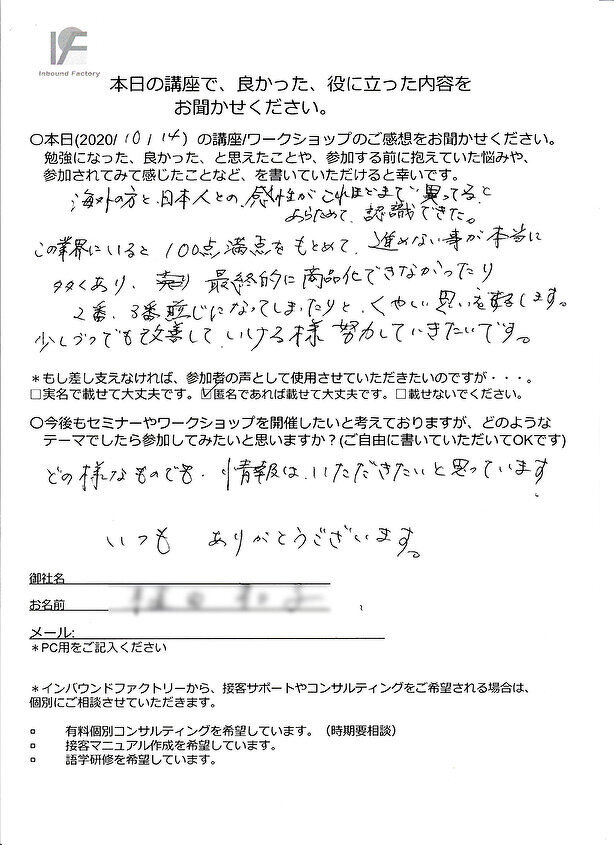 IF
Inbound Factory
本日の講座で、良かった、役に立った内容を
お聞かせください。
〇本日(2020/10/14) の講座/ワークショップのご感想をお聞かせください。
勉強になった、良かった、と思えたことや、参加する前に抱えていた悩みや、
参加されてみて感じたことなど、を書いていただけると幸いです。
海外の方と日本人との、感性がこれほどまで異ってると
あらためて、認識できた。
この業界にいると100点満点をもとめて、進めない事が本当に
多くあり、最終的に商品化できなかったり
2番、3番煎じになってしまったりと、くやしい思いをするします。
少しづつでも改善して、いける様努力していきたいです。
＊もし差し支えなければ、参加者の声として使用させていただきたいのですが・・・。
□実名で載せて大丈夫です。☑匿名であれば載せて大丈夫です。□載せないでください。
〇今後もセミナーやワークショップを開催したいと考えておりますが、どのような
テーマでしたら参加してみたいと思いますか？(ご自由に書いていただいてOKです)
どの様なものでも、情報は、いただきたいと思っています。
いつも ありがとうございます。
御社名
お名前
メール:
＊PC用をご記入ください
＊インバウンドファクトリーから、接客サポートやコンサルティングをご希望される場合は、
個別にご相談させていただきます。
▫ 有料個別コンサルティングを希望しています。（時期要相談）
▫ 接客マニュアル作成を希望しています。
▫ 語学研修を希望しています。